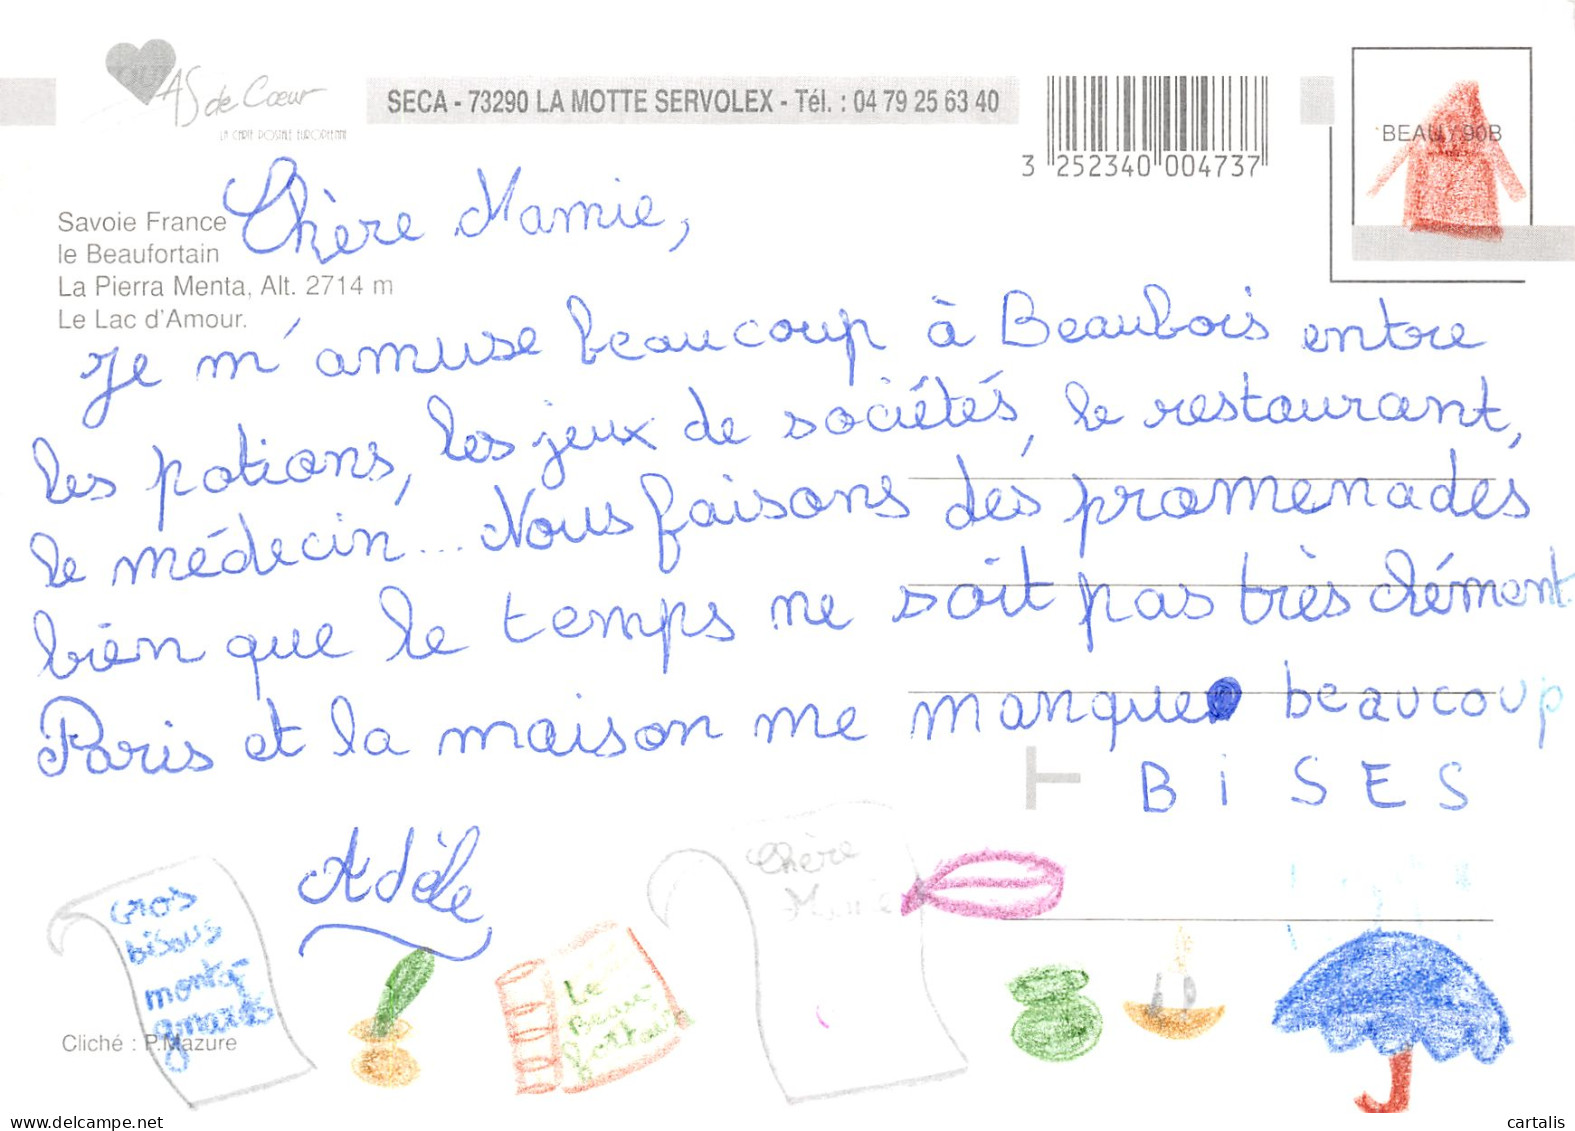 AS de Cœur
LA CARTE POSTALE EUROPÉENNE
SECA - 73290 LA MOTTE SERVOLEX - Tél. : 04 79 25 63 40
3 252340 004737
BEAU / 90B
Savoie France
le Beaufortain
La Pierra Menta, Alt. 2714 m
Le Lac d'Amour.
Chère Mamie,
Je m'amuse beaucoup à Beaubois entre
les potions, les jeux de sociétés, le restaurant,
le médecin... Nous faisons des promenades
bien que le temps ne soit pas très clément.
Paris et la maison me manque beaucoup
BISES
Adèle
Gros
bisous
monta-
gnards
Le
Beau-
fortain
Chère
Mamie
Cliché : P.Mazure
www.delcampe.net
cartalis